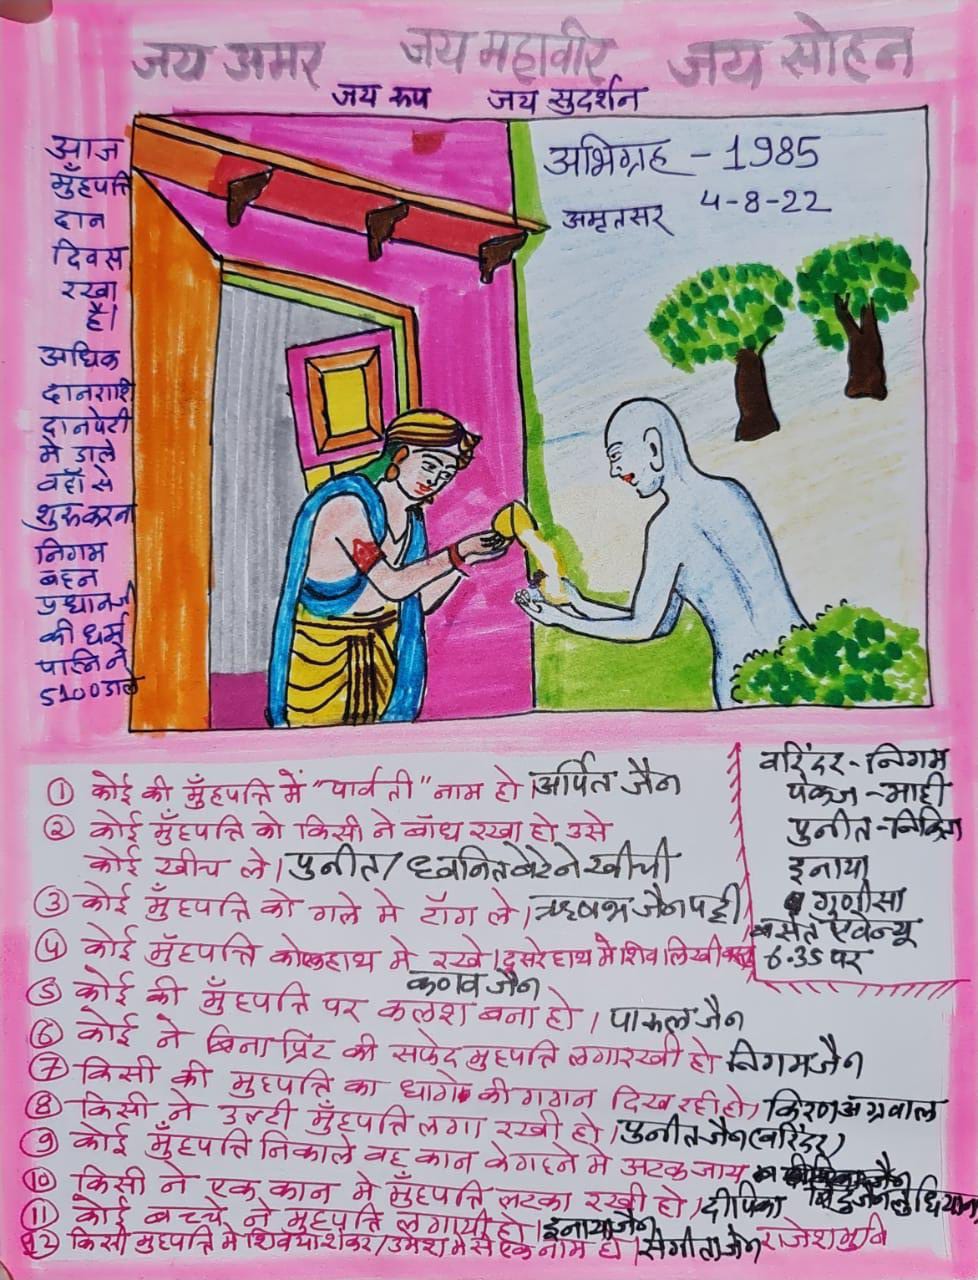 जय अमर जय महावीर जय सोहन
जय रूप जय सुदर्शन
अभिग्रह - 1985
अमृतसर 4-8-22
आज
मुँहपत्ति
दान
दिवस
रखा
है।
अधिक
दानराशि
दानपेटी
मे डाले
वहाँ से
शुरू करना
निगम
बहन
प्रधानजी
की धर्म
पत्नि ने
5100 डाले
① कोई की मुँहपत्ति में "पार्वती" नाम हो। अर्पित जैन
② कोई मुँहपत्ति को किसी ने बाँध रखा हो उसे
कोई खींच ले। पुनीत/ध्वनित बेटे ने खीची
③ कोई मुँहपत्ति को गले मे टाँग ले। ऋषभ जैन पट्टी
④ कोई मुँहपत्ति को एक हाथ मे रखे। दूसरे हाथ मे शिव लिखी वस्तु
कणव जैन
⑤ कोई की मुँहपत्ति पर कलश बना हो। पारुल जैन
⑥ कोई ने बिना प्रिंट की सफेद मुहपत्ति लगा रखी हो निगम जैन
⑦ किसी की मुहपत्ति का धागे की गगन दिख रही हो। किरण अग्रवाल
⑧ किसी ने उल्टी मुँहपत्ति लगा रखी हो। पुनीत जैन (वरिंदर)
⑨ कोई मुँहपत्ति निकाले वह कान के गहने मे अटक जाय जैन
⑩ किसी ने एक कान मे मुँहपत्ति लटका रखी हो। दीपिका बिंदु जैन लुधियाना
⑪ कोई बच्चे ने मुहपत्ति लगायी हो। इनाया जैन
12 किसी मुहपत्ति मे शिव या शंकर/उमेश मे से एक नाम हो। संगीता जैन राजेश मुनि
वरिंदर - निगम
पंकज - माही
पुनीत - निकिता
इनाया
गुणीसा
सेंत एवेन्यू
6.35 पर